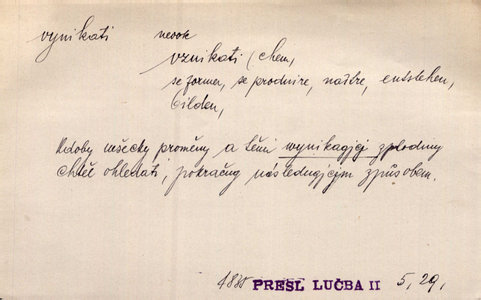 vynikati neob
vznikati (chem,
se former, se produire, naître, entstehen,
bilden,
Kdoby všecky proměny a těmi wynikagjcj zplodiny
chtěl ohledati, pokračug následugjcjm způsobem.
PRESL LUČBA II 5, 29,